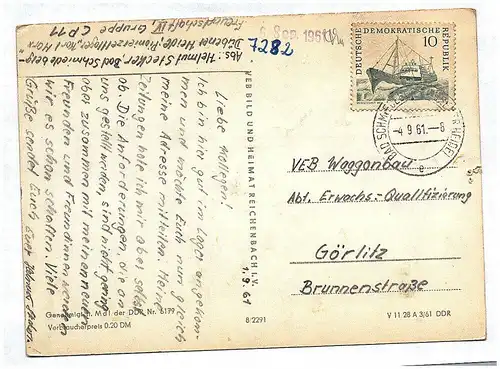 Abs: Helmut Stecker Bad Schmiedeberg-
Dübener Heide, Pionierzeltlager "Karl Marx"
Freundschaft IV Gruppe CP 11
Sep. 1961
7282
DEUTSCHE DEMOKRATISCHE REPUBLIK
10
BAD SCHMIEDEBERG
-4.9.61.-8
e
Liebe Kollegen!
Ich bin hier gut im Lager angekom-
men und möchte Euch nun gleich
meine Adresse mitteilen. Meine
Zeitungen hole ich mir aber selbst
ob. Die Anforderungen, die an
uns gestellt werden, sind nicht gering
aber zusammen mit meinen neuen
Freunden und Freundinnen werden
wir es schon schaffen. Viele
Grüße sendet Euch Euer
1.9.61
VEB BILD UND HEIMAT REICHENBACH I. V.
VEB Waggonbau
Abt. Erwachs.-Qualifizierung
Görlitz
Brunnenstraße
Genehmigt d. MdI der DDR Nr. 6179
Verbraucherpreis 0.20 DM
8/2291
V 11 28 A 3/61 DDR